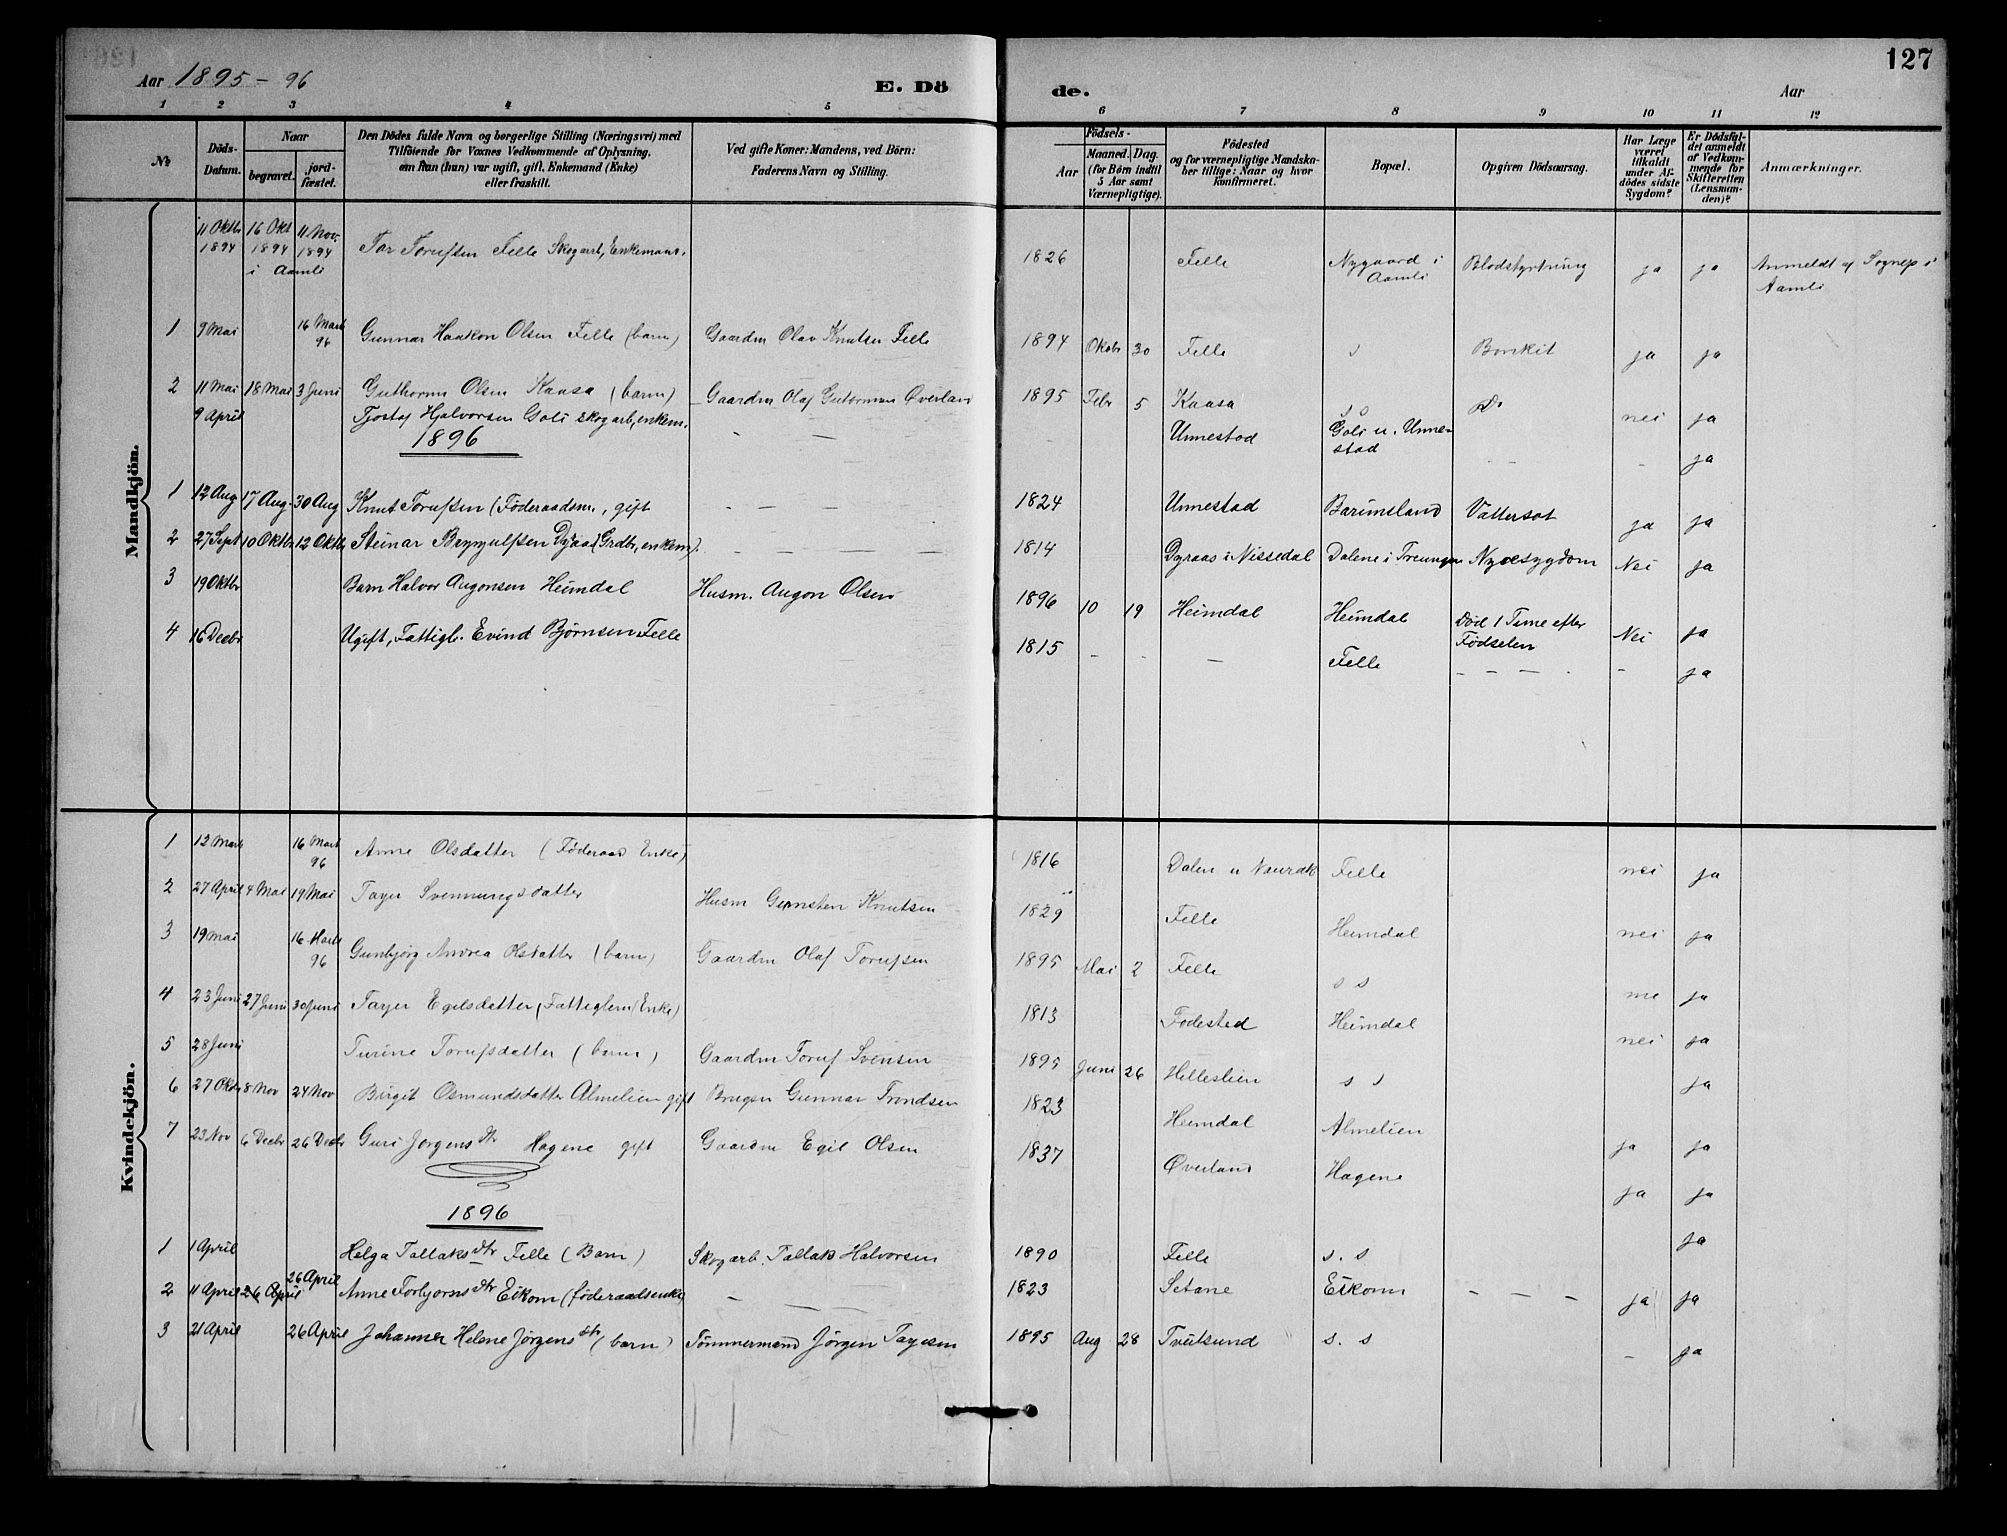 127
Aar 1895-96
E. Dö
de.
Aar
1 2 3 4 5 6 7 8 9 10 11 12
No
Döds-Datum.
Naar
begravet.
jord-fæstet.
Den Dödes fulde Navn og borgerlige Stilling (Næringsvei) med
Tilföiende for Voxnes Vedkommende af Oplysning,
om han (hun) var ugift, gift, Enkemand (Enke)
eller fraskilt.
Ved gifte Koner: Mandens, ved Börn:
Faderens Navn og Stilling.
Födsels-
Aar
Maaned. Dag.
(for Börn indtil
5 Aar samt
Værnepligtige).
Födested
og for værnepligtige Mandska-
ber tillige: Naar og hvor
Konfirmeret.
Bopæl.
Opgiven Dödsaarsag.
Har Læge
været
tilkaldt
under Af-
dödes sidste
Sygdom?
Er Dödsfal-
det anmeldt
af Vedkom-
mende for
Skifteretten
(Lensman-
den)?
Anmærkninger.
Mandkjön.
11 Oktbr 1894 16 Okt 1894 11 Nov. 1894 i Aamli Tor Torufsen Felle Skogarb, Enkemand. 1826 Felle Nygaard i Aamli Blodstyrtning ja ja Anmeldt af Sognep i Aamli
1 9 Mai 16 Marts 96 Gunnar Haakon Olsen Felle (barn) Gaardm Olav Knutsen Felle 1894 Oktbr 30 Felle s ja ja
2 11 Mai 18 Mai 3 Juni Guthorm Olsen Kaasa (barn) Gaardm Olaf Gutormsen Øverland 1895 Febr 5 Kaasa s s Do nei ja
9 April Tjostof Halvorsen Goli skogarb, enkem. - - Unnestad Goli u. Unnestad - - - ja
1896
1 12 Aug 17 Aug. 30 Aug Knut Torufsen (Föderaadsm., gift - - - 1824 Unnestad Barimsland Vattersot ja ja
2 27 Sept 10 Oktbr 12 Oktbr Steinar Brynjulfsen Dyraas (Grdbr, enkem.) 1814 Dyraas i Nissedal Dalene i Treungen Nyresygdom Nei ja
3 19 Oktbr Barn Halvor Augonsen Heimdal Husm. Augon Olsen 1896 10 19 Heimdal Heimdal Död 1 Time efter Födselen Nei ja
4 16 Decbr Ugift, Fattigl. Evind Bjørnsen Felle 1815 - - - Felle - - - - ja
Kvindekjön.
1 12 Marts 16 Marts 96 Anne Olsdatter (Föderaad Enke) 1816 Dalen u Felle nei ja
2 27 April 4 Mai 19 Mai Tayer Svenningsdatter Husm Knutsen 1829 Felle Heimdal nei ja
3 19 Mai 16 Marts 96 Gunbjörg Andrea Olsdatter (barn) Gaardm Olaf Torufsen 1895 Mai 2 Felle s s ja
4 23 Juni 27 Juni 30 Juni Tayer Egilsdatter (Fattiglem Enke) 1813 Födested Heimdal nei ja
5 28 Juni Turine Torufsdatter (barn) Gaardm Toruf Svensen 1895 Juni 26 Helleslien s s ja
6 27 Oktbr 8 Nov 24 Nov Birgit Osmundsdatter Almelien gift Brugsm Gunnar Trondsen 1823 Heimdal Almelien ja ja
7 23 Nov 6 Decbr 26 Decbr Guri Jorgensdtr Hagene gift Gaardm Egil Olsen 1837 Øverland Hagene ja ja
1896
1 1 April Helga Tallaksdtr Felle (Barn) Skogarb. Tallak Halvorsen 1890 Felle s. s ja
2 11 April 26 April 26 April Anne Torbjornsdtr Eikom (föderaadsenke) - - 1823 Setane Eikom - - - ja ja
3 21 April 26 April Johanne Helene Jörgensdtr (barn) Tömmermand Jörgen Tayesen 1895 Aug 28 Tveitsund s. s - ja